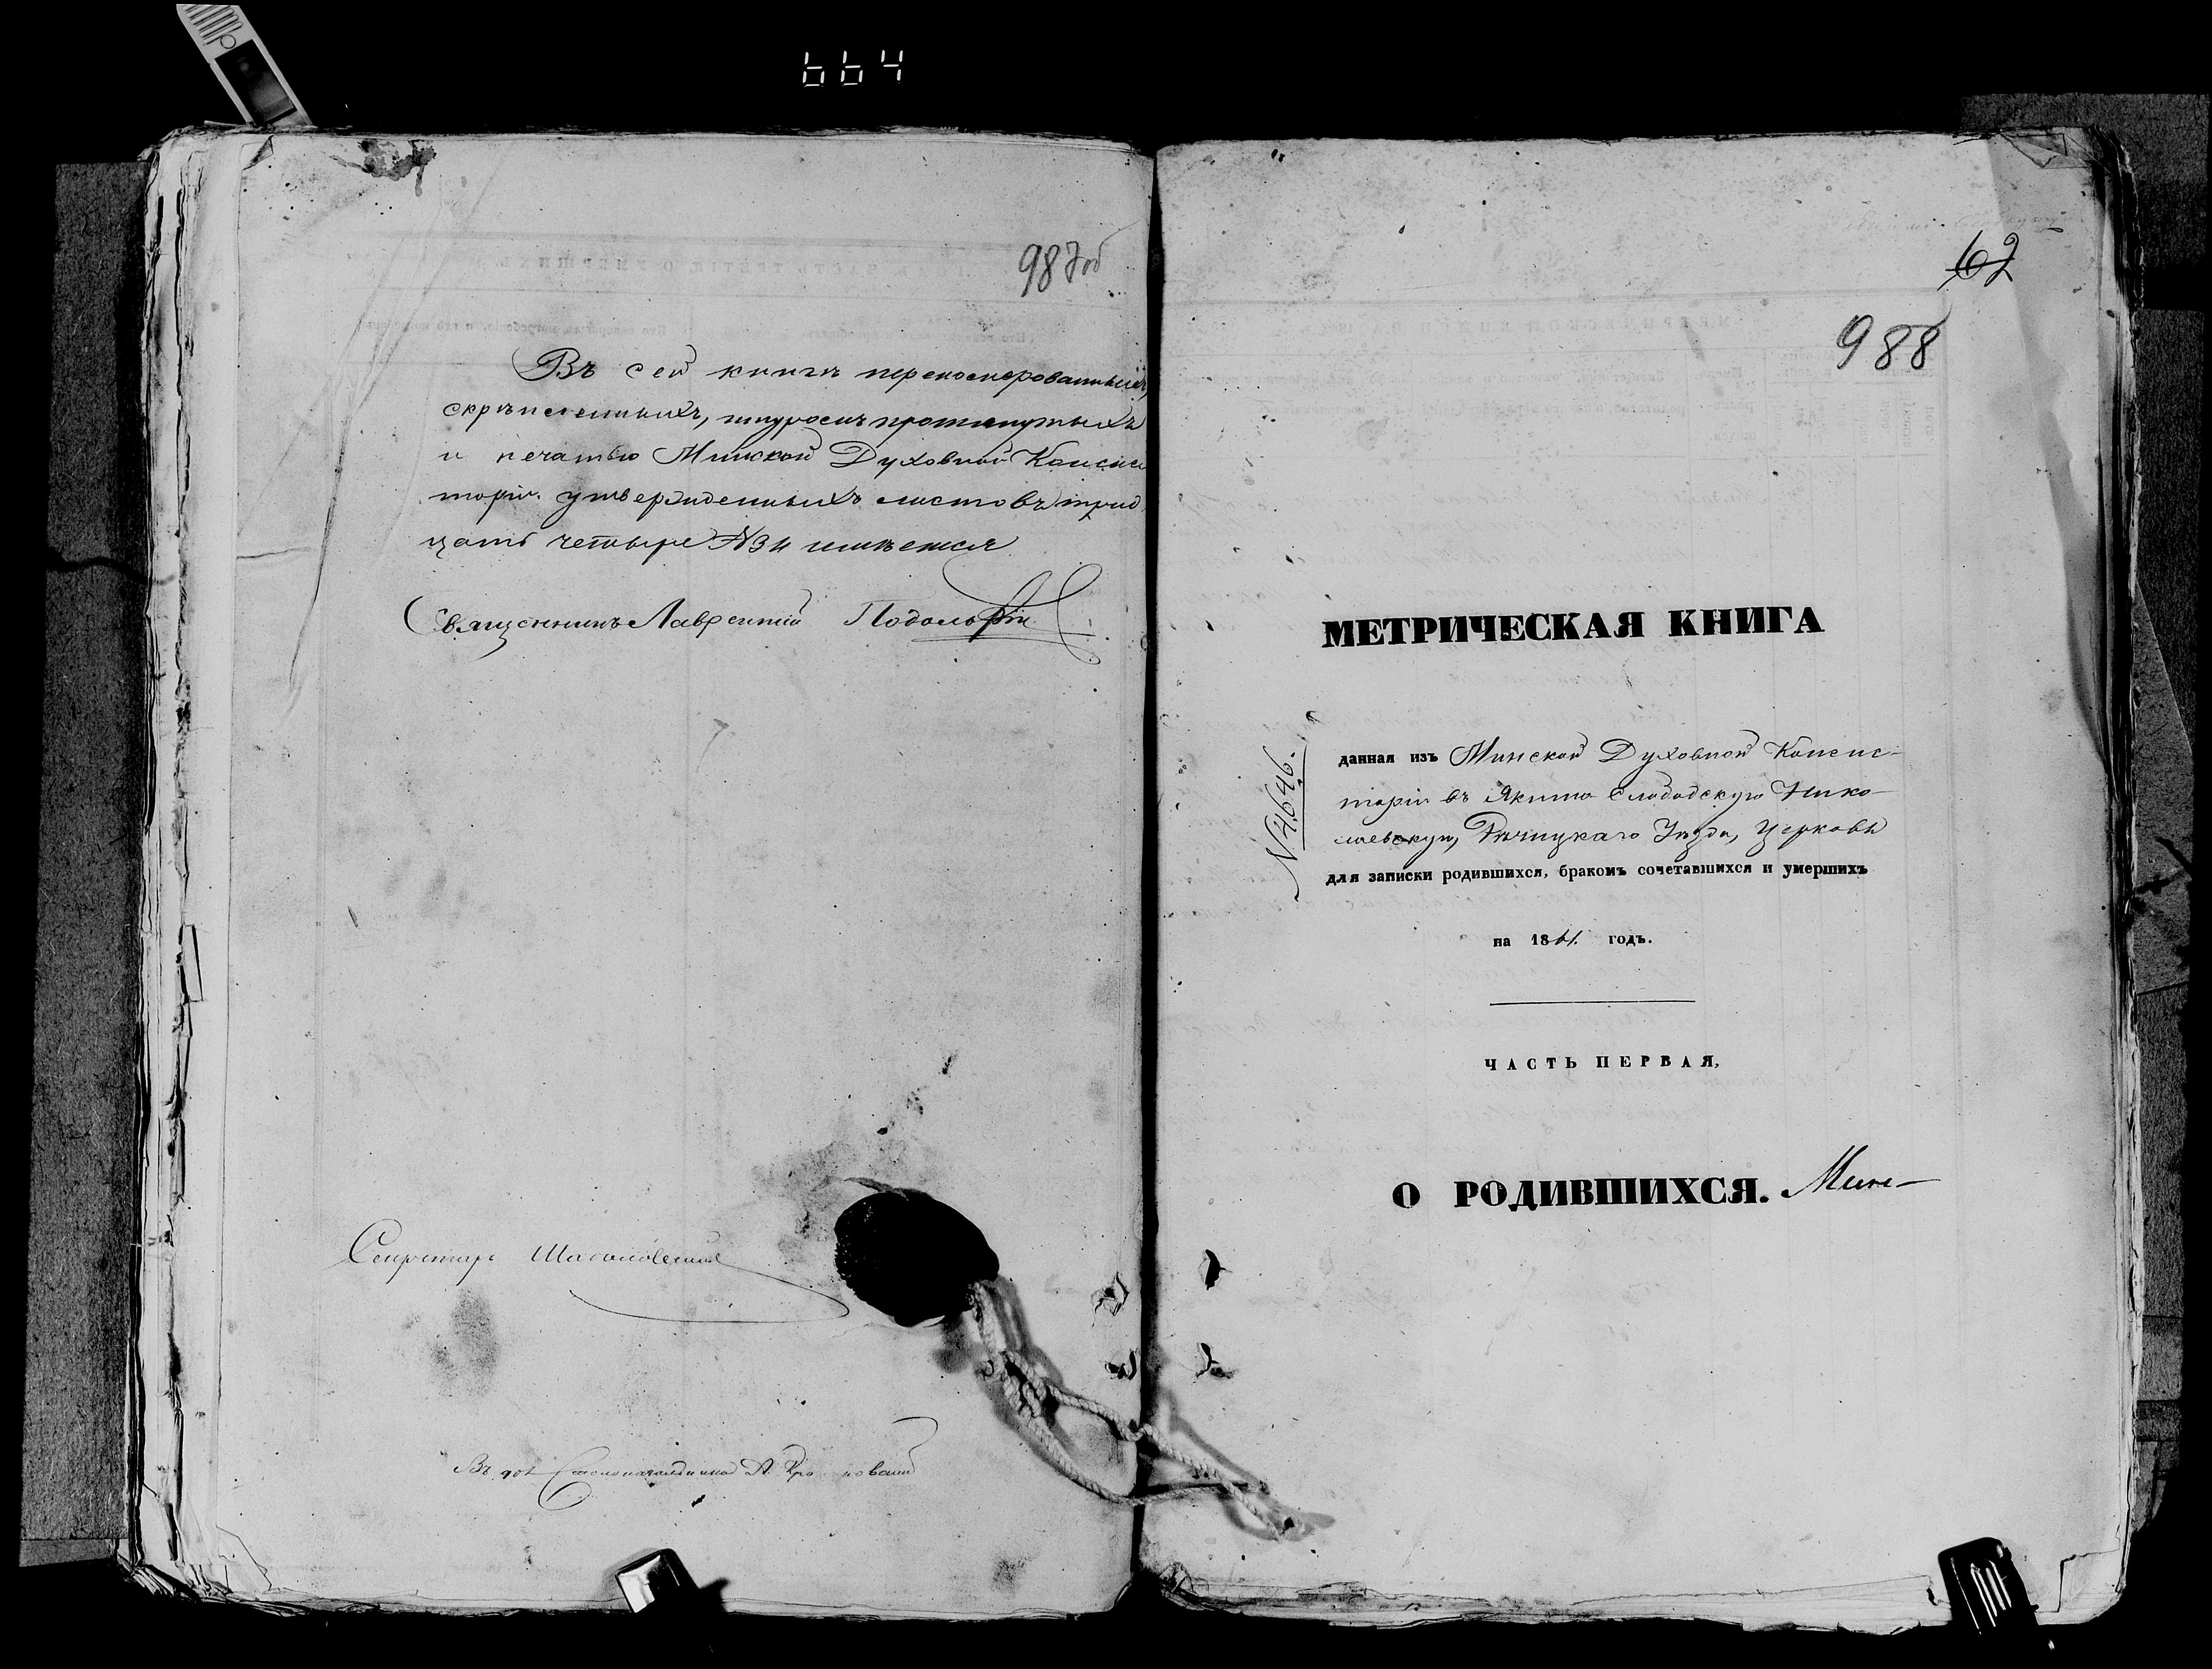 664
987об
Въ сей книгѣ перенумерованныхъ,
скрѣпленныхъ, шнуромъ протянутыхъ
и печатью Минской Духовной Консис
торіи утвержденныхъ листовъ трид
цать четыре №34 имѣется
Священникъ Лаврентій
Секретарь
Въ дол. Столоначальника А.
62
988
МЕТРИЧЕСКАЯ КНИГА
№4646.
данная изъ Минской Духовной Консис-
торіи въ Якимо Слободскую Нико-
лаевскую, Рѣчицкаго Уѣзда, церковь
для записки родившихся, бракомъ сочетавшихся и умершихъ
на 1861. годъ.
ЧАСТЬ ПЕРВАЯ,
О РОДИВШИХСЯ.